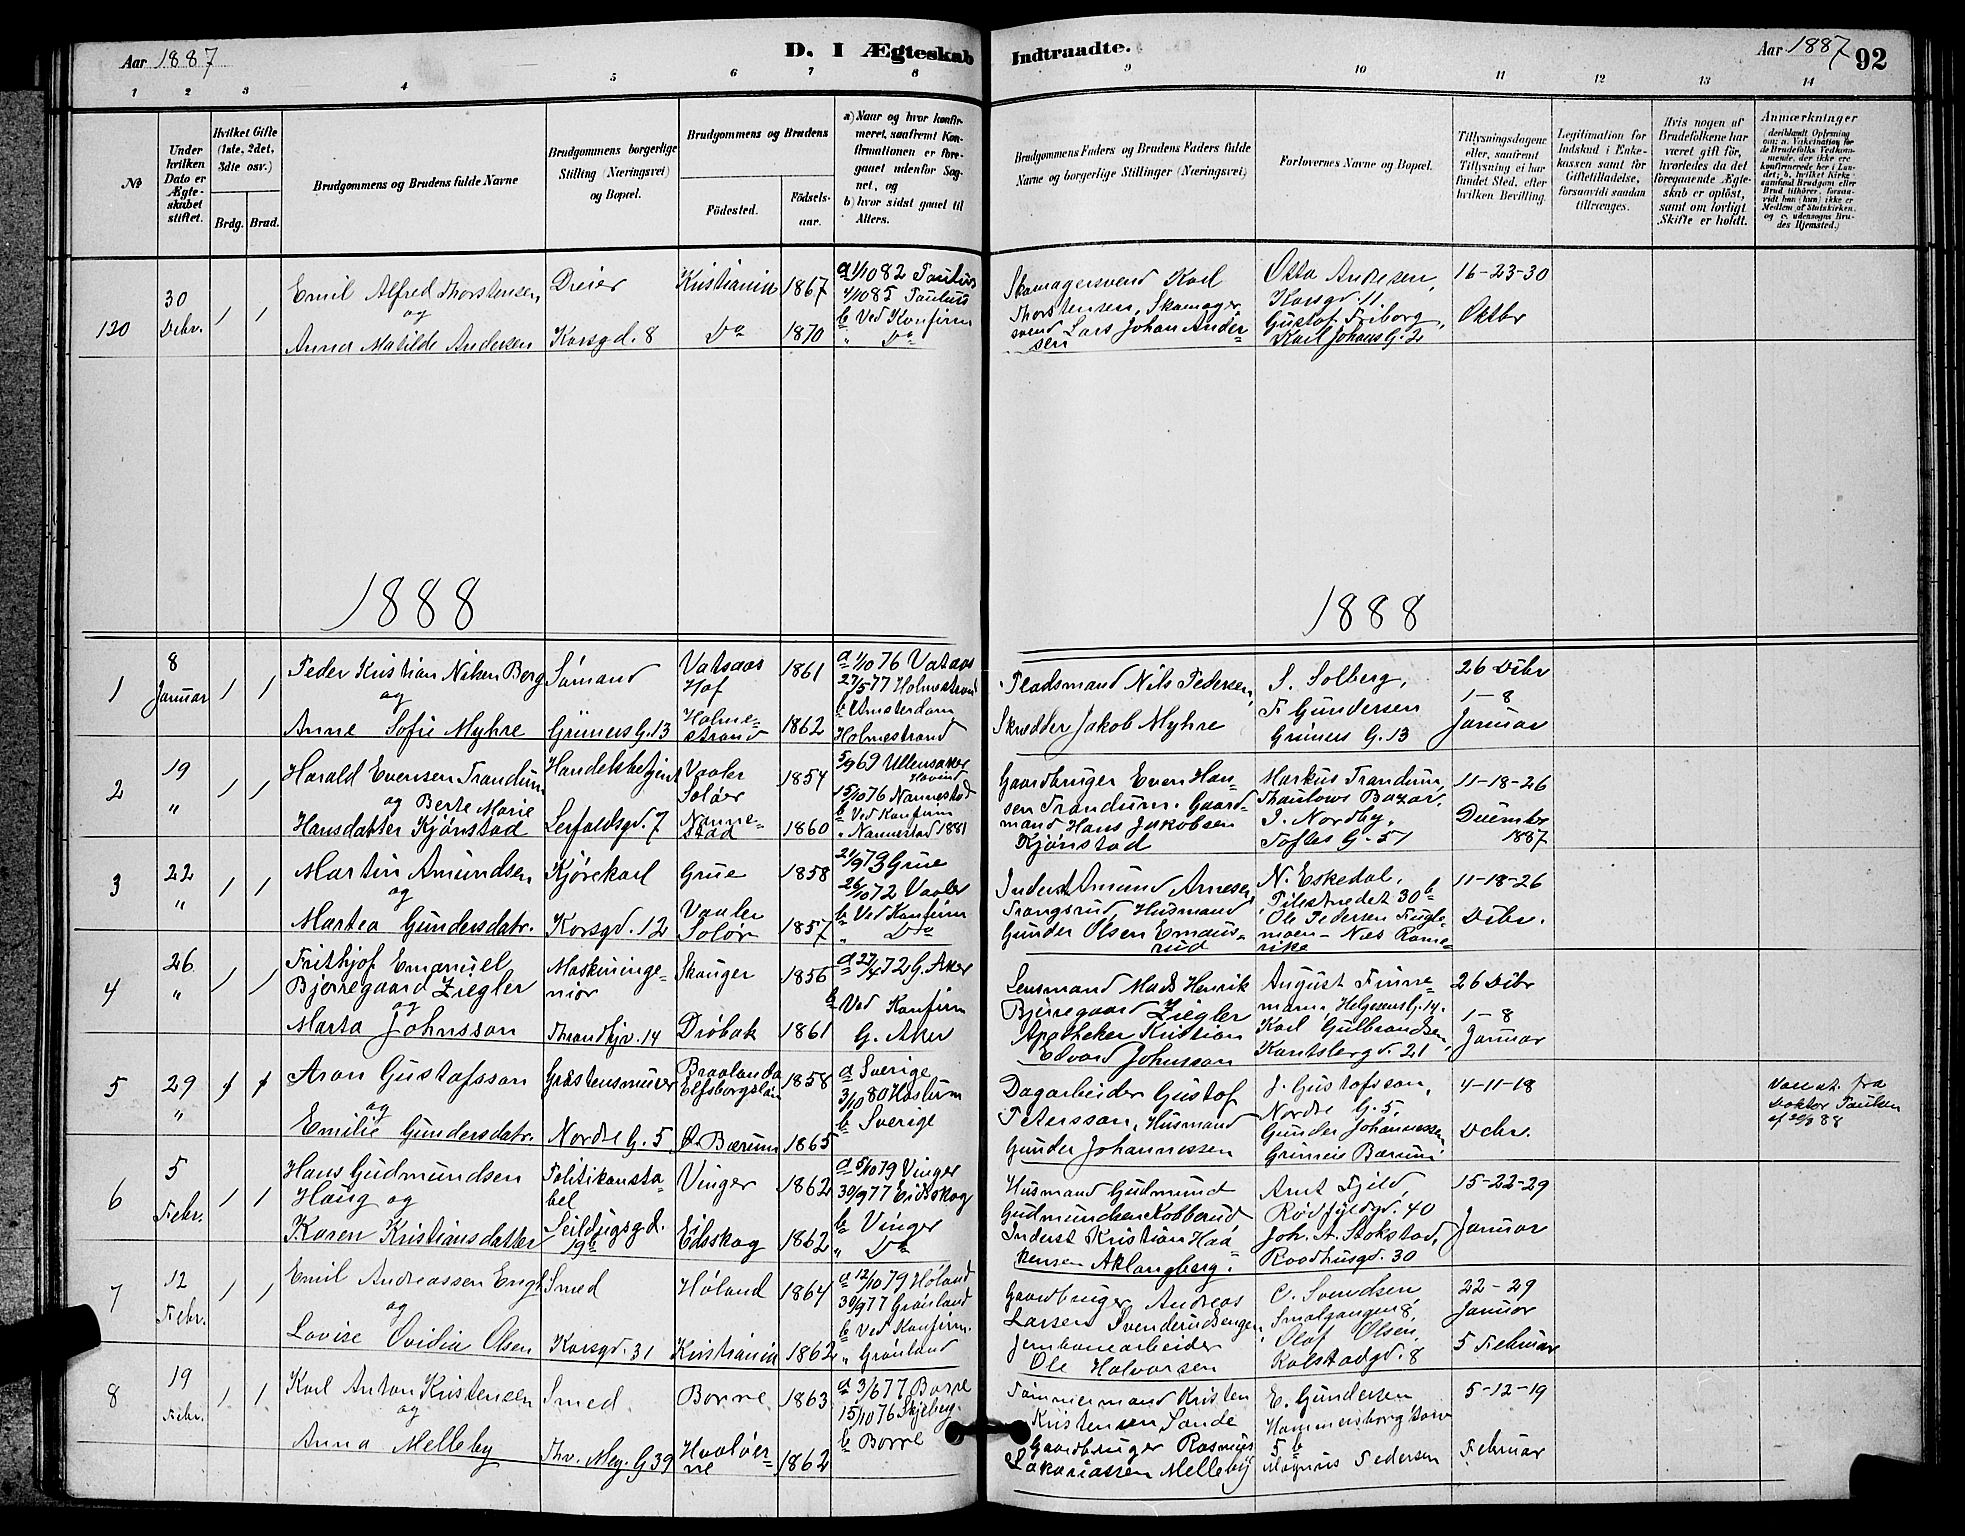 Aar 1887
D. I Ægteskab Indtraadte.
Aar 1887
92
1 2 3 4 5 6 7 8 9 10 11 12 13 14
No
Under hvilken Dato er Ægteskabet stiftet.
Hvilket Gifte (1ste, 2det, 3dte osv.)
Brdg. Brud.
Brudgommens og Brudens fulde Navne
Brudgommens borgerlige Stilling (Næringsvei) og Bopæl.
Brudgommens og Brudens
Fødested.
Fødselsaar.
a) Naar og hvor konfirmeret, saafremt Konfirmationen er foregaaet udenfor Sognet, og
b) hvor sidst gaaet til Alters.
Brudgommens Faders og Brudens Faders fulde Navne og borgerlige Stillinger (Næringsvei)
Forlovernes Navne og Bopæl.
Tillysningsdagene eller, saafremt Tillysning ei har fundet Sted, efter hvilken Bevilling.
Legitimation for Indskud i Enkekassen samt for Giftetilladelse, forsaavidt saadan tiltrænges.
Hvis nogen af Brudefolkene har været gift før, hvorledes da det foregaaende Ægteskab er opløst, samt om lovligt Skifte er holdt.
Anmærkninger (deriblandt Oplysning om: a. Vakcination for de Brudefolks Vedkommende, der ikke ere konfirmerede her i Landet; b. hvilket Kirkesamfund Brudgom eller Brud tilhører, forsaavidt han (hun) ikke er Medlem af Statskirken, og c. udensogns Brudes Hjemsted.)
120
30 Debr.
1 1
Emil Alfred Thorstensen
og
Anna Matilde Andersen
Dreier
Korsgd. 8
Kristiania 1867
Do 1870
a 1/10 82 Paulus
1/10 85 Paulus
b Ved Konfirm
" Do
Skomagersvend Karl
Thorstensen, Skomager
svend Lars Johan Ander=
sen
Otto Andersen,
Korsgd. 11
Gustaf Friborg,
Karl Johans G. 2
16-23-30
Oktbr
1888
1888
1
8 Januar
1 1
Peder Kristian Nilsen Berg
og
Anne Sofie Myhre
Sømand
Grüners G. 13
Vatsaas
Hof 1861
Holme=
strand 1862
a 1/10 76 Vatsaas
27/5 77 Holmestrand
b Amsterdam
Holmestrand
Pladsmand Nils Pedersen,
Skrædder Jakob Myhre
S. Solberg,
F. Gundersen
Grüners G. 13
26 Debr
1-8
Januar
2
19 "
1 1
Harald Evensen Trandum
og Berte Marie
Hansdatter Kjønstad
Handelsbetjent
Leirfaldsgd. 7
Vaaler
Soløer 1854
Nanne=
stad 1860
5/9 69 Ullensaker
Hovind
15/10 76 Nannestad
b Ved Konfirm
" Nannestad 1881
Gaardbruger Even Han=
sen Trandum. Gaard=
mand Hans Jakobsen
Kjønstad
Markus Trandum,
Thaulows Bazar.
I. Nordby,
Toftes G. 51
11-18-26
December
1887
3
22 "
1 1
Martin Amundsen
og
Martea Gundersdatr.
Kjørekarl
Korsgd. 12
Grue 1858
Vaaler
Solør 1857
21/9 73 Grue
26/10 72 Vaaler
b Ved Konfirm
" Do
Inderst Amund Arnesen
Trangsrud, Husmand
Gunder Olsen Emaus=
rud
N. Eskedal,
Pilestrædet 30b
Ole Pedersen Fugle=
moen - Næs Rome=
rike
11-18-26
Debr.
4
26 "
1 1
Frithjof Emanuel
Bjerregaard Ziegler
og
Marta Johnsson
Maskininge=
niør
Throndhjv. 14
Skauger 1856
Drøbak 1861
a 27/4 72 G. Aker
b Ved Konfirm
G. Aker
Lensmand Mads Henrik
Bjerregaard Ziegler
Apotheker Kristian
Edvard Johnsson
August Finne=
mann Helgesens G. 14.
Karl Gulbrandsen,
Kantsbergd. 21
26 Debr
1-8
Januar
5
29 "
1 1
Aron Gustafsson
og
Emilie Gundersdatr.
Gråstensmurer
Nordre G. 5
Braalanda
Elfsborgslän 1858
Ø. Bærum 1865
a Sverige
3/10 80 Haslum
b Sverige
Dagarbeider Gustof
Petersson, Husmand
Gunder Johannessen
J. Gustafsson,
Nordre G. 5,
Gunder Johannessen,
Bærum
4-11-18
Debr.
Vac. at. fra
Doktor Paulsen
6
5 Febr.
1 1
Hans Gudmundsen
Haug og
Karen Kristiansdatter
Politikonsta=
bel
Seildugsgd.
19b
Vinger 1862
Eidsskog 1862
a 5/10 79 Vinger
30/9 77 Eidsskog
b Vinger
" Do
Husmand Gudmund
Gudmundsen Kobberud
Inderst Kristian Haa=
kensen Aklangberg.
Arnt Fjeld,
Rødfyldgd. 40
Joh. A. Stokstad,
Raadhusgd. 30
15-22-29
Januar
7
12 Febr.
1 1
Emil Andreassen Engh
og
Lovise Ovidia Olsen
Smed
Korsgd. 31
Høland 1864
Kristiania 1862
a 12/10 79 Høland
30/9 77 Grønland
b Ved Konfirm.
" Grønland
Gaardbruger Andreas
Larsen Svenderudengen,
Jernbanearbeider
Ole Halvorsen
C. Svendsen,
Smalgangen 8,
Olaf Olsen,
Kolstadgd. 8
22-29
Januar
5 Februar
8
19 Febr.
1 1
Karl Anton Kristensen
og
Anna Melleby
Smed.
Thv. Mey. G 39
Borre 1863
Hvaløer=
ne 1862
a 3/6 77 Borre
15/10 76 Skjeberg.
b Borre
Tømmermand Kristen
Kristensen Sande
Gaardbruger Rasmus
Sakariassen Melleby
E. Gundersen
Hammersborg Torv
5b
Magnus Pedersen
5-12-19
Februar